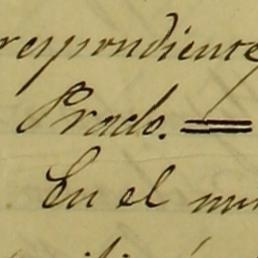 respondiente
Prado. =
En el mu